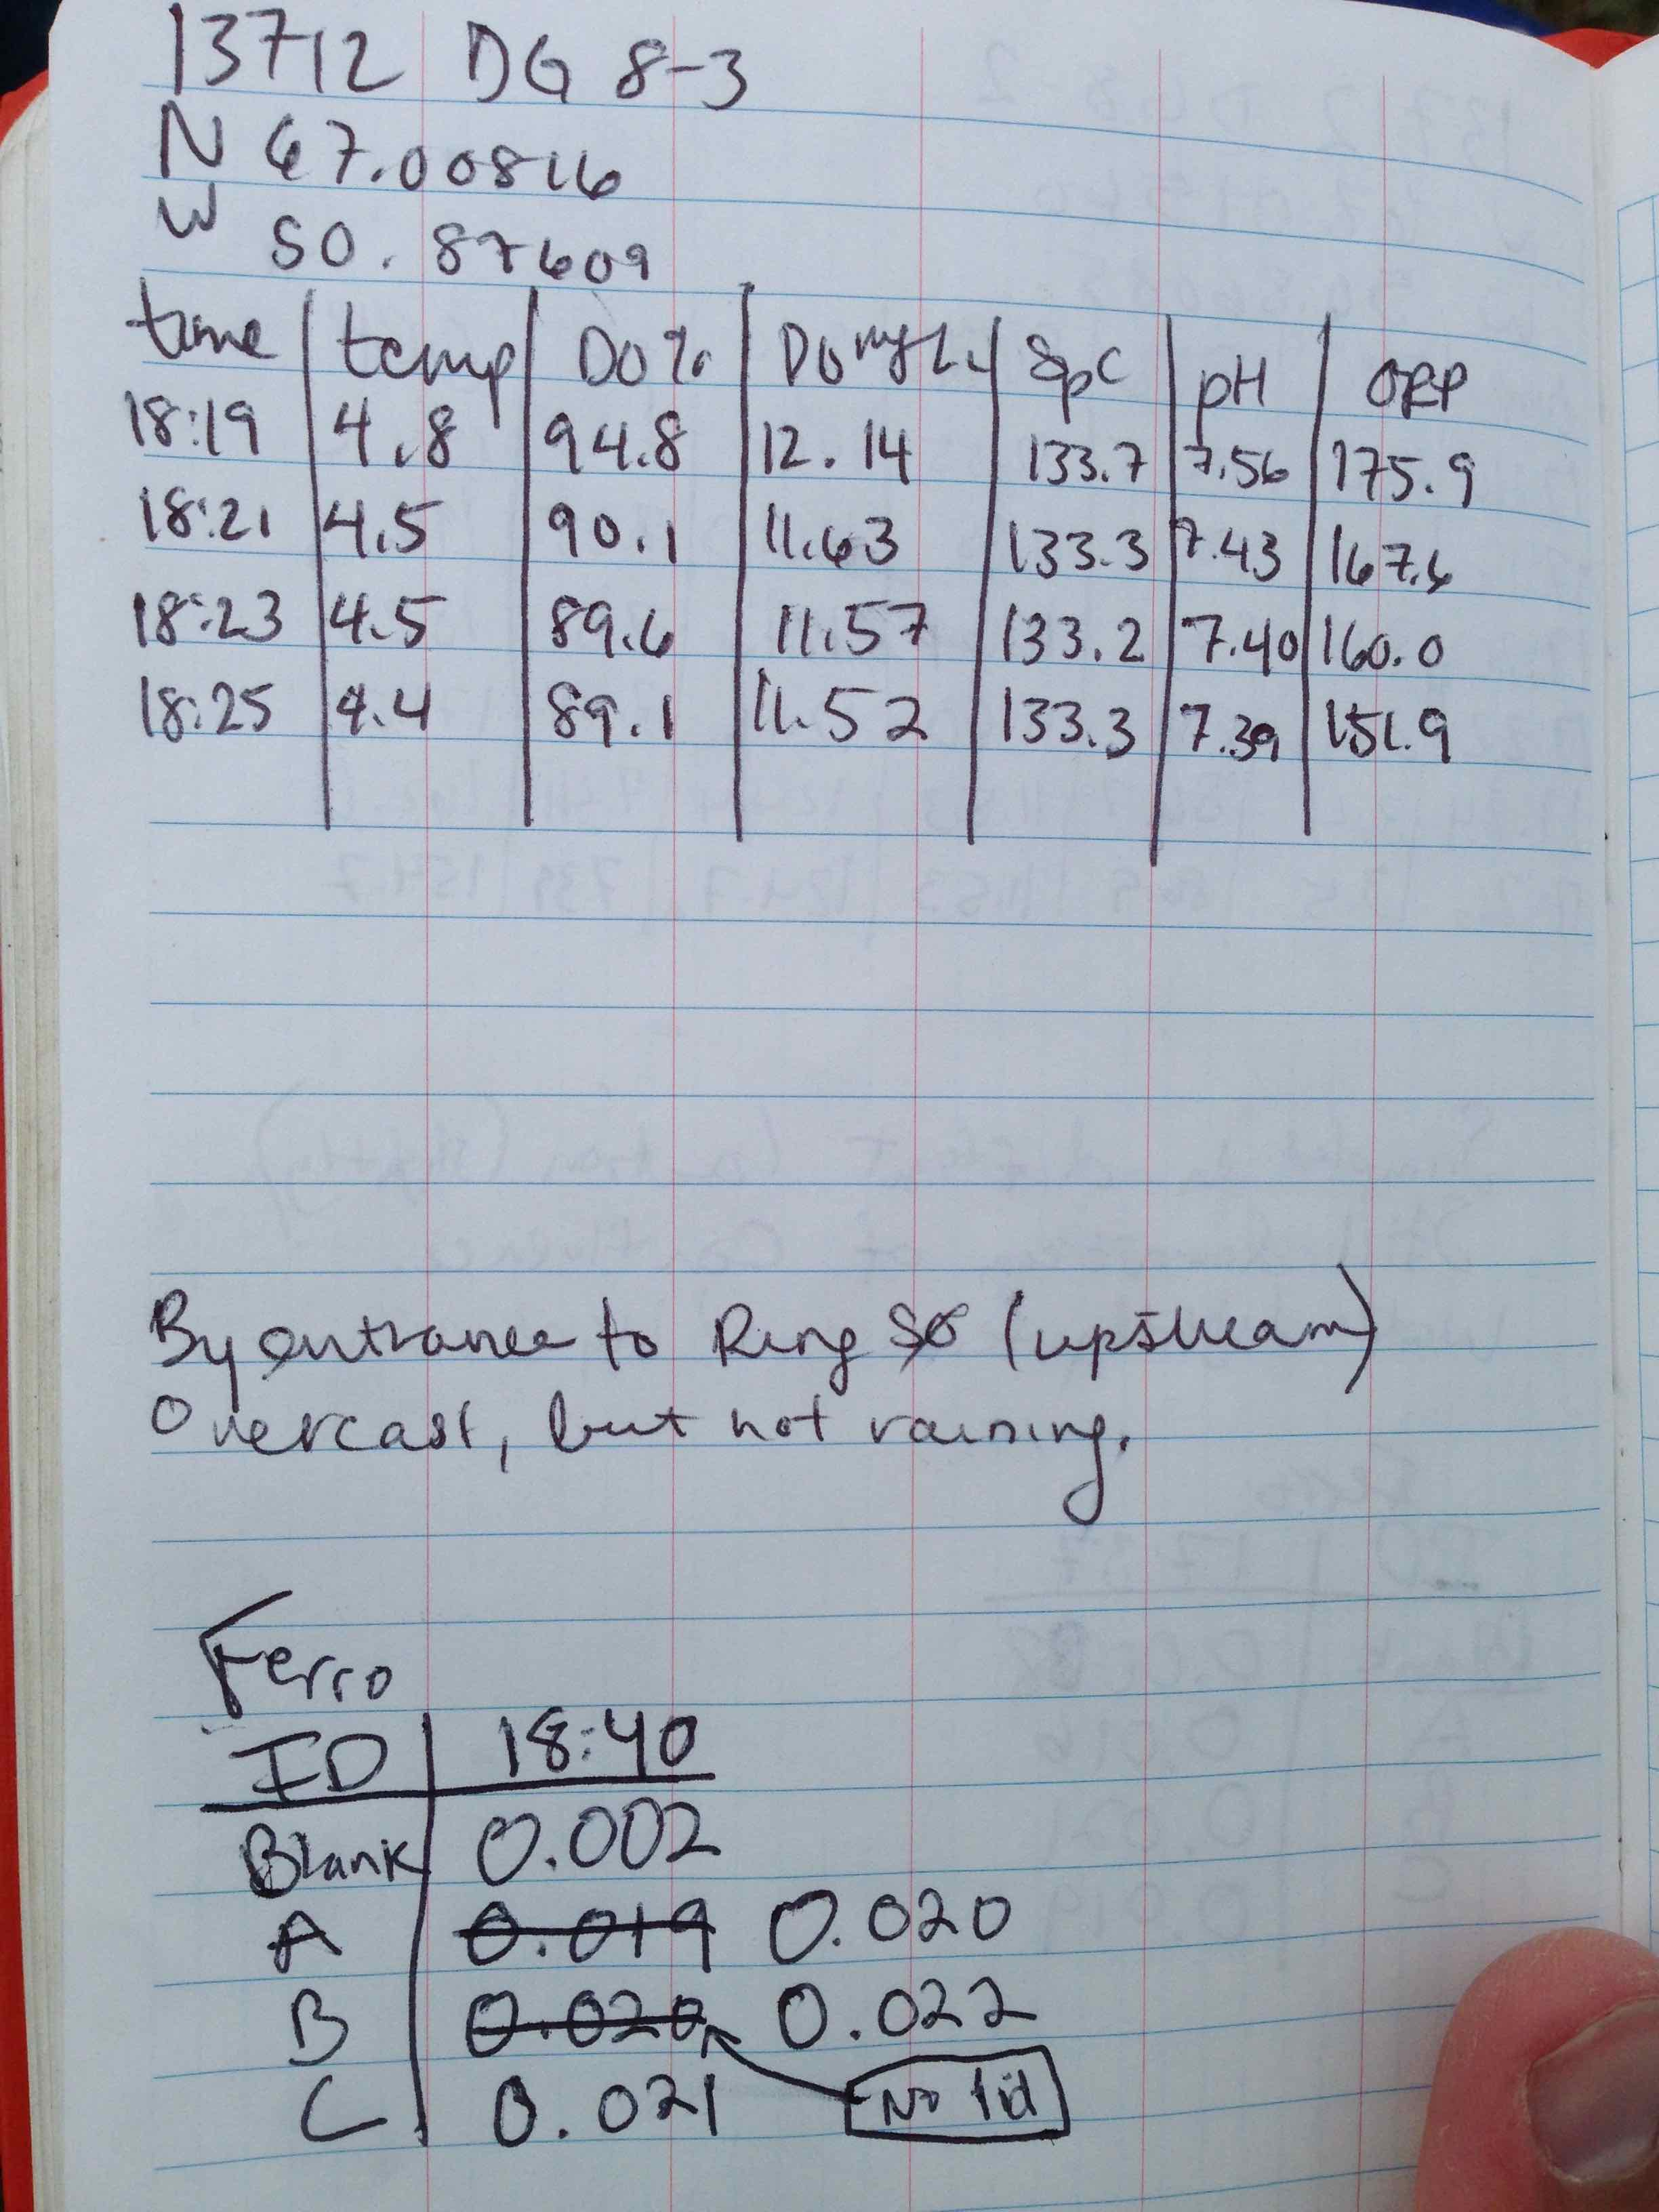 13712 DG 8-3
N 67.00816
W 50.87609
time temp DO% DO mg/L SpC pH ORP
18:19 4.8 94.8 12.14 133.7 7.56 175.9
18:21 4.5 90.1 11.63 133.3 7.43 167.6
18:23 4.5 89.6 11.57 133.2 7.40 160.0
18:25 4.4 89.1 11.52 133.3 7.39 151.9
By entrance to Ring (upstream)
Overcast, but not raining.
Ferro
ID 18:40
Blank 0.002
A 0.019 0.020
B 0.020 0.022
C 0.021 No lid